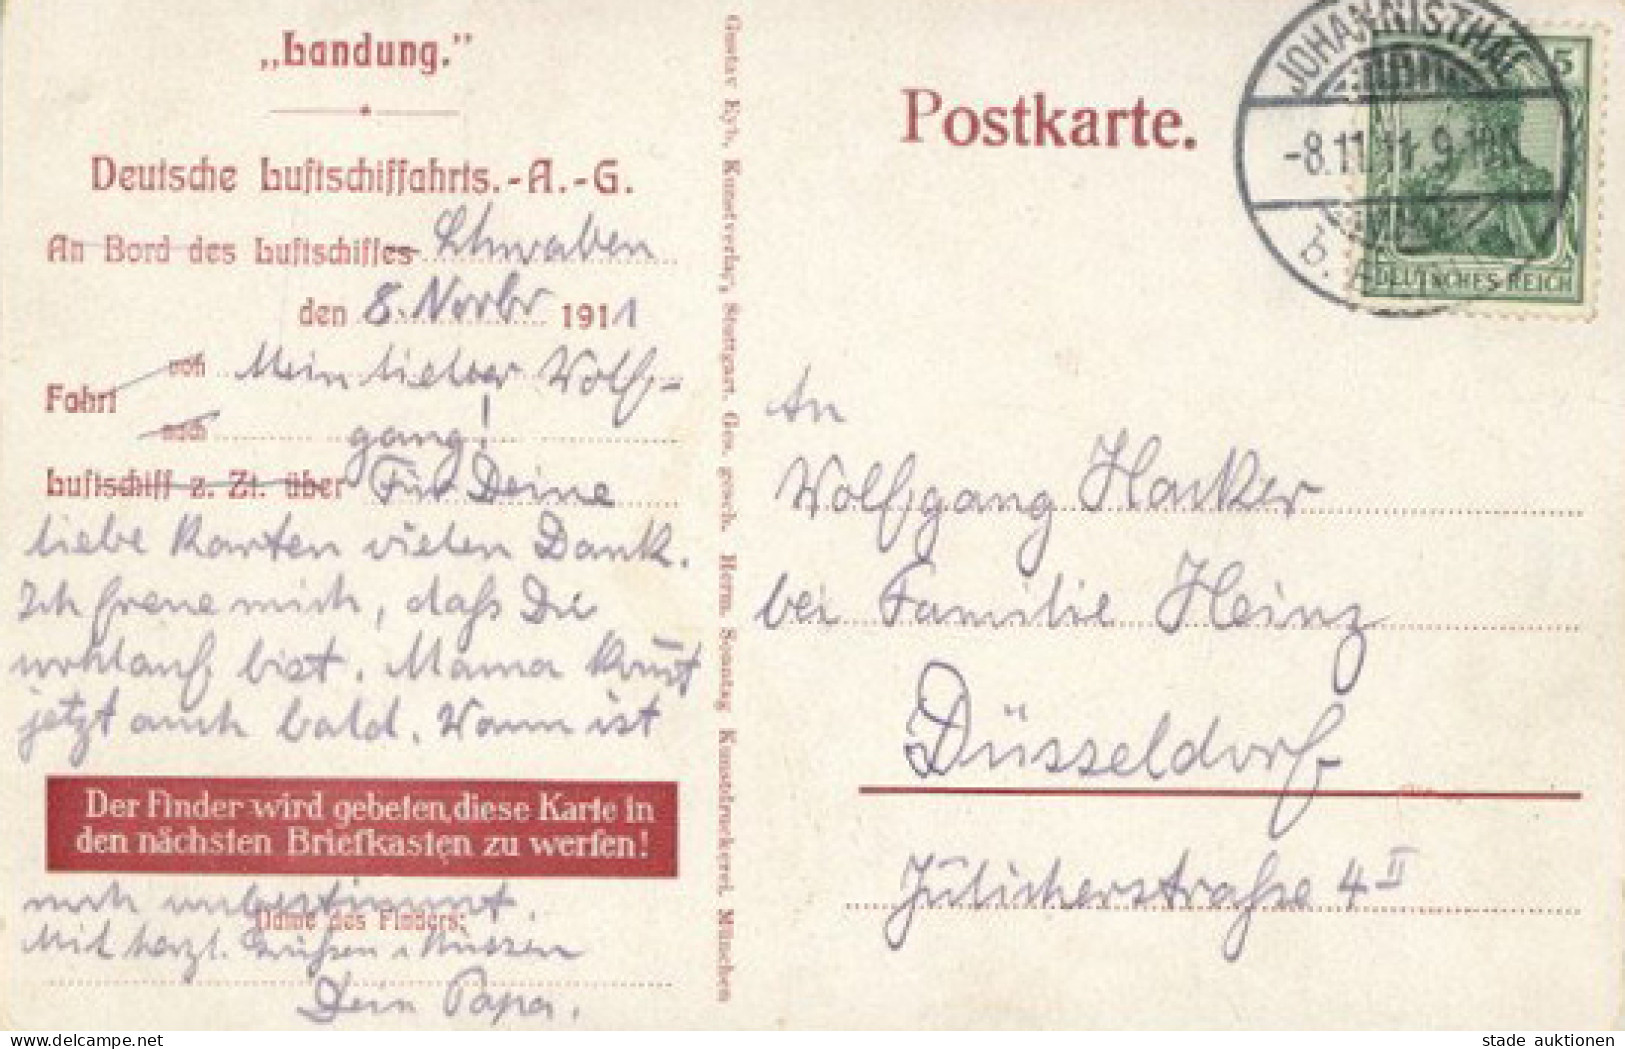 „Landung."
Deutsche Luftschiffahrts.-A.-G.
An Bord des Luftschiffes Schwaben
den 8. Novbr 1911
Fahrt von Mein lieber Wolf-
nach gang!
Luftschiff z. Zt. über Für Deine
liebe Karten vielen Dank.
Ich freue mich, daß Du
wohlauf bist. Mama kommt
jetzt auch bald. Wann ist
Der Finder wird gebeten, diese Karte in
den nächsten Briefkasten zu werfen!
noch unbestimmt.
Name des Finders:
Mit herzl. Grüßen u. Küssen
Dein Papa.
Gustav Eyb, Kunstverlag, Stuttgart. Ges. gesch. Herm. Sonntag Kunstdruckerei München
Postkarte.
JOHANNISTHAL
-8.11.11. 9-10
b.
5
DEUTSCHES REICH
An
Wolfgang Hacker
bei Familie Heinz
Düsseldorf
Jülicherstraße 4 II
stade auktionen
www.delcampe.net